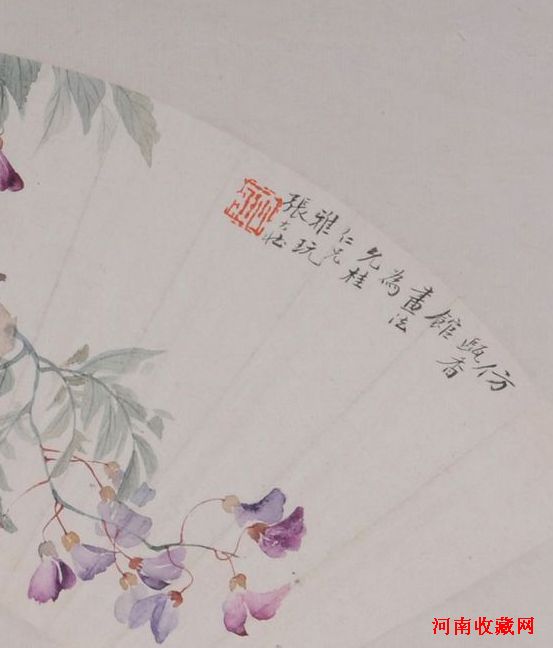 仿
甌香
館
畫法
為
允桂
仁兄
雅玩
張大壯
河南收藏网